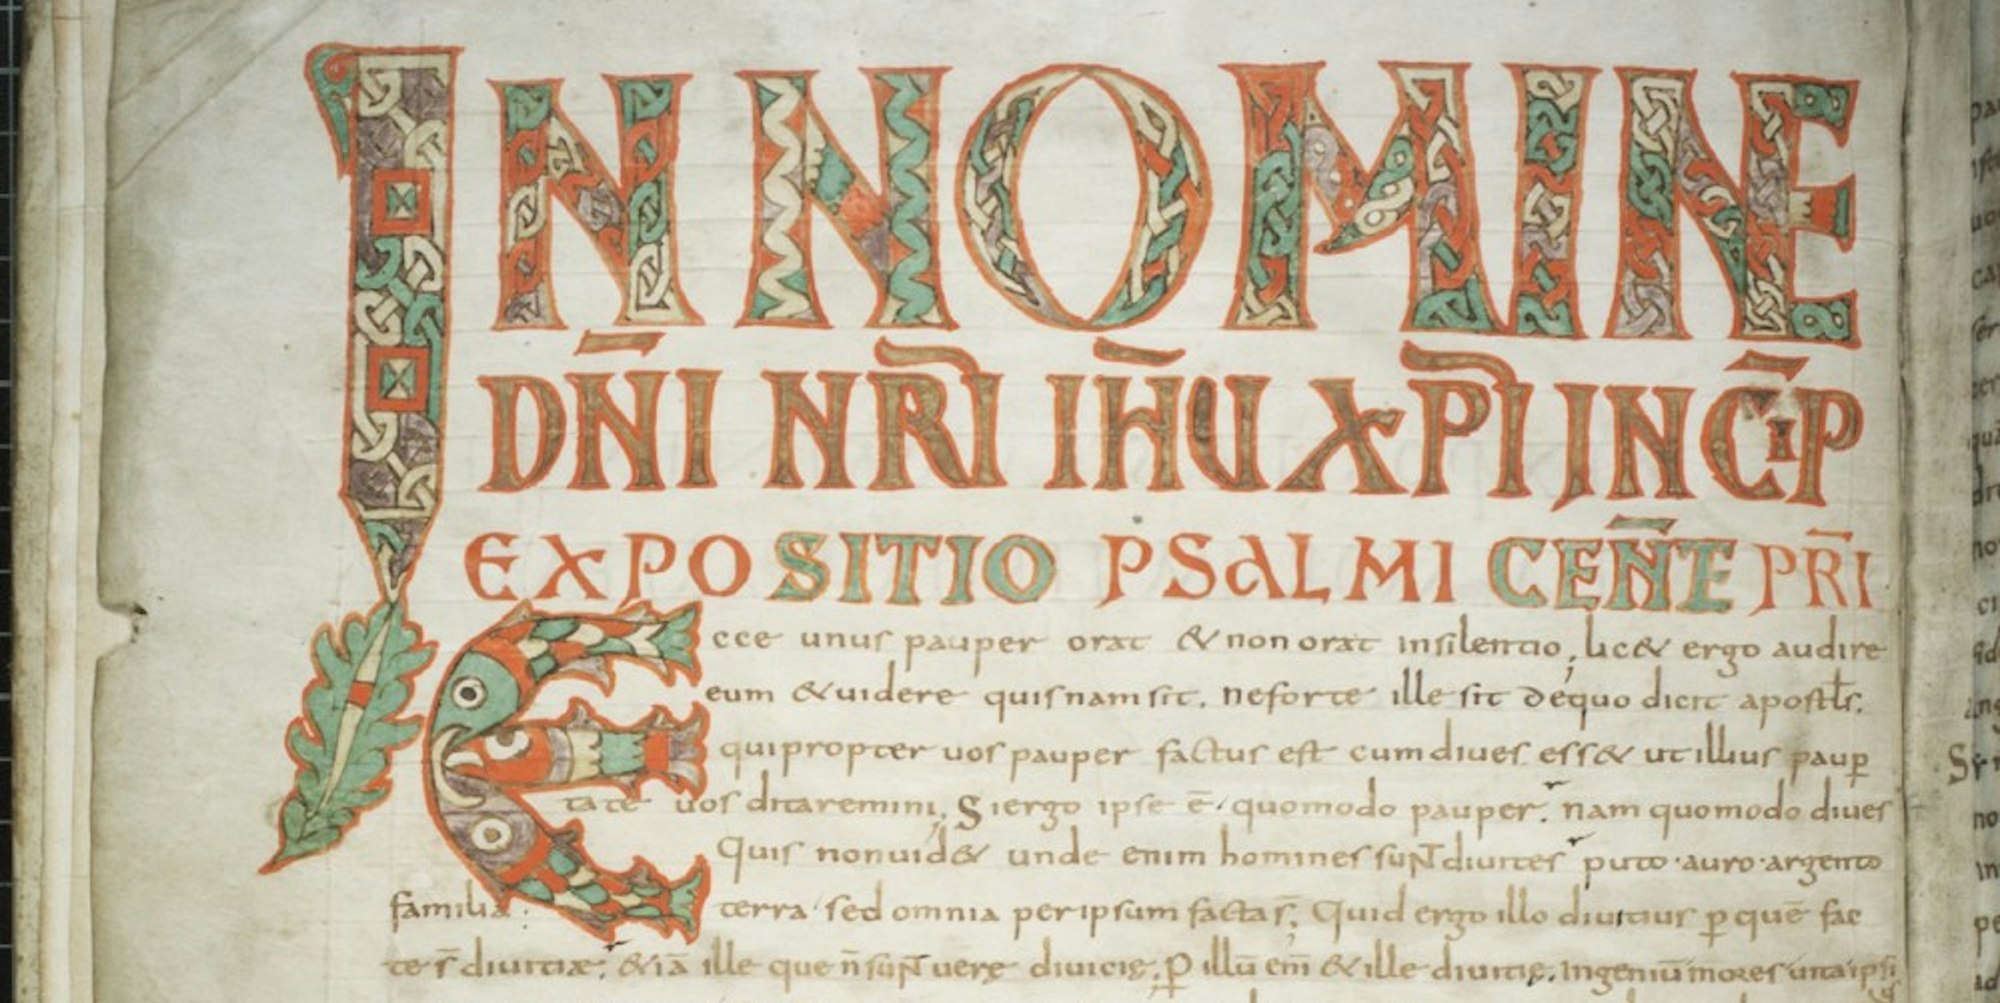 IN NOMINE
DN̄I NR̄I IH̄U XP̄I INC̄IP
EXPOSITIO PSALMI CEN̄TE PR̄I
Ecce unus pauper orat & non orat insilentio, lic& ergo audire
eum & uidere quisnam sit. ne forte ille sit dequo dicit apostł̄s.
qui propter uos pauper factus est cum diues ess& ut illius paup̲
tate uos ditaremini. Si ergo ipse ē. quomodo pauper. nam quomodo diues
Quis non uid& unde enim homines suN̄T diuites puto · auro · argento
familia · terra sed omnia per ipsum facta s̄. Quid ergo illo diuitius p̲ quē fac
te s̄ diuitiæ. &iā ille que n̄ suN̄T uere diuicię. P̲ illū em̄ & ille diuitię. Ingeniū mores uita ipsi